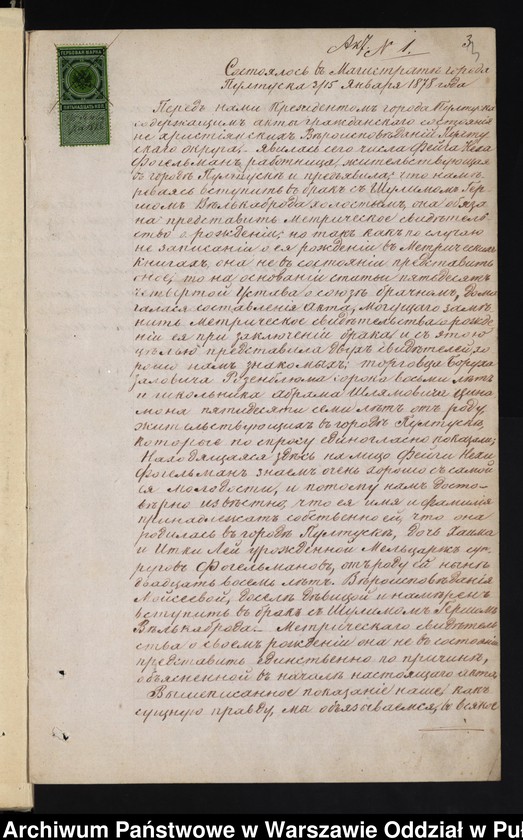 Акт № 1.
3
ГЕРБОВАЯ МАРКА
Состоялось въ Магистратѣ города
Пултуска 3/15 Января 1878 года
Передъ нами Президентомъ города Пултуска
содержащимъ акты гражданскаго состоянія
не христіянскихъ Вѣроисповѣданій Пулту
скаго округа, явилась сего числа Фейга Неха
Фогельманъ, работница, жительствующая
въ городѣ Пултускѣ и предъявила; что намѣ
реваясь вступить въ бракъ съ Шулимомъ Гер
шомъ Вѣлькаброда холостымъ, она обяза
на представить Метрическое свидѣтель
ство о рожденіи; но такъ какъ по случаю
не записаніи о ея рожденіи въ Метрическихъ
книгахъ, она не въ состояніи представить
оное; то на основаніи статьи пятьдесятъ
четвертой Устава о союзѣ брачномъ, дома
галася составленія Акта, Могущаго замѣ
нить Метрическое свидѣтельство о рожде
ніи ея при заключеніи брака и съ этою
цѣлью представила двухъ свидѣтелей, хо
рошо намъ знакомыхъ; торговца Боруха
Розенблюма сорока восьми лѣтъ
и школьника Абрама Шлямовича
мона пятьдесяти семи лѣтъ отъ роду,
жительствующихъ въ городѣ Пултускѣ,
которые по спросу единогласно показали;
Находящаяся здѣсь на лицо Фейги Нехи
Фогельманъ знаемъ очень хорошо съ самой
ея молодости, и потому намъ досто-
вѣрно извѣстно, что ея имя и фамилія
принадлежатъ собственно ей, что она
родилась въ городѣ Пултускѣ, Дочь Хаима
и Итки Леи урожденной Мельцаржъ су-
пруговъ Фогельмановъ, отъ роду ей нынѣ
двадцать восемь лѣтъ. Вѣроисповѣданія
Мойсеевой, доселѣ дѣвицой и намѣрена
вступить въ бракъ съ Шулимомъ Гершомъ
Вѣлькаброда. Метрическаго свидѣтель
ства о своемъ рожденіи она не въ состояніи
представить единственно по причинѣ,
объясненной въ началѣ настоящаго акта,
Вышеписанное показаніе наше, какъ
сущную правду, мы обязываемся, въ всякое
Archiwum Państwowe w Warszawie Oddział w Puł